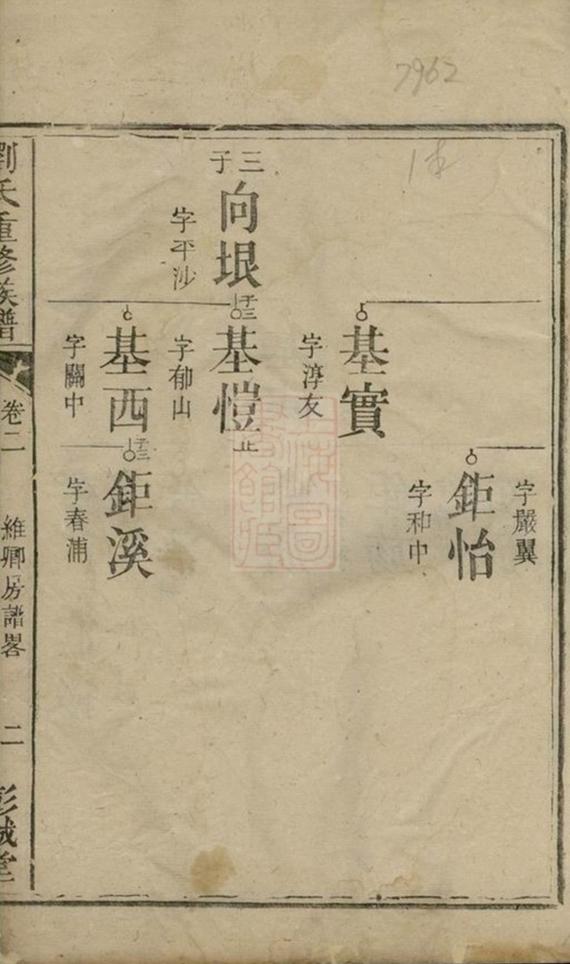 7962
1本
字嚴翼
鉅怡
字和中
基實
字淳友
三子
向垠
字平沙
基愷
止
字郁山
基西
字關中
鉅溪
字春浦
劉氏重修族譜
卷二
維卿房譜畧
二
彭城堂
上海圖書館藏